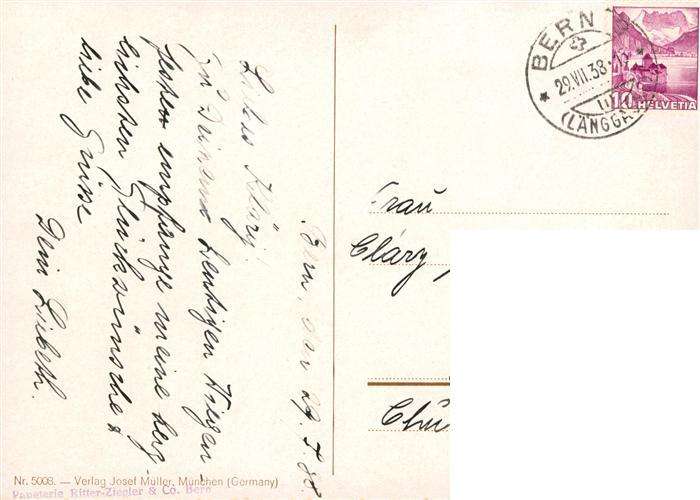 Bern, den 29.7.38.
Liebes Kläry!
Zu Deinem heutigen Wiegen-
feste empfange meine herz-
lichsten Glückwünsche &
liebe Grüsse
Dein Lisbeth.
BERN
29.VII.38
(LÄNGGASSE)
10 HELVETIA
Frau
Cläry
Chu
Nr. 5008. — Verlag Josef Müller, München (Germany)
Papeterie Ritter-Ziegler & Co. Bern